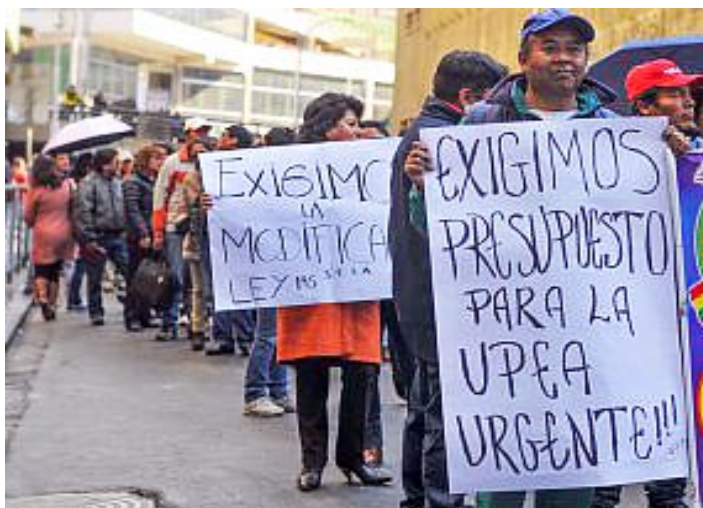 EXIGIMO
LA
MODIFICA
LEY
EXIGIMOS
PRESUPUESTO
PARA LA
UPEA
URGENTE!!!